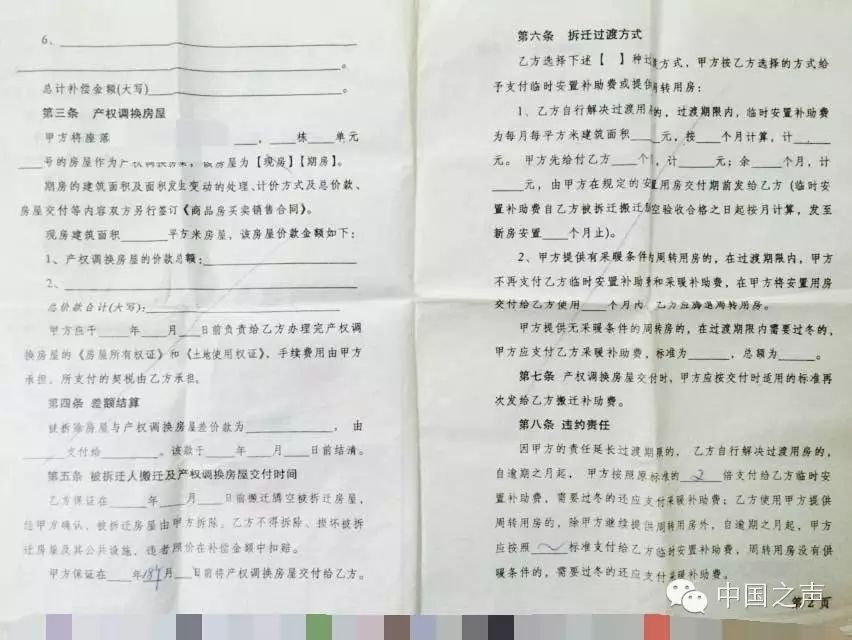 6、
。
总计补偿金额(大写)。
第三条 产权调换房屋
甲方将座落 ，栋单元
号的房屋作为产权调换房屋，该房屋为【现房】【期房】。
期房的建筑面积及面积发生变动的处理、计价方式及总价款、
房屋交付等内容双方另行签订《商品房买卖销售合同》。
现房建筑面积平方米房屋，该房屋价款金额如下：
1、产权调换房屋的价款总额：
2、
总价款合计(大写)：
甲方应于年月日前负责给乙方办理完产权调
换房屋的《房屋所有权证》和《土地使用权证》，手续费用由甲方
承担，所支付的契税由乙方承担。
第四条 差额结算
被拆除房屋与产权调换房屋差价款为，由
支付给。该款于年月日前结清。
第五条 被拆迁人搬迁及产权调换房屋交付时间
乙方保证在年月日前搬迁腾空被拆迁房屋，
经甲方确认，被拆迁房屋由甲方拆除。乙方不得拆除、损坏被拆
迁房屋及其公共设施，违者照价在补偿金额中扣赔。
甲方保证在年月日前将产权调换房屋交付给乙方。
第六条 拆迁过渡方式
乙方选择下述【 】种过渡方式，甲方按乙方选择的方式给
予支付临时安置补助费或提供周转用房：
1、乙方自行解决过渡用房的，过渡期限内，临时安置补助费
为每月每平方米建筑面积元，按个月计算，计
元。甲方先给付乙方个月，计元；余个月，计
元，由甲方在规定的安置用房交付期前发给乙方(临时安
置补助费自乙方被拆迁搬迁腾空验收合格之日起按月计算，发至
新房安置个月止)。
2、甲方提供有采暖条件的周转用房的，在过渡期限内，甲方
不再支付乙方临时安置补助费和采暖补助费，在甲方将安置用房
交付给乙方使用个月内，乙方应腾退周转用房。
甲方提供无采暖条件的周转房的，在过渡期限内需要过冬的，
甲方应支付乙方采暖补助费，标准为，总额为。
第七条 产权调换房屋交付时，甲方应按交付时适用的标准再
次发给乙方搬迁补助费。
第八条 违约责任
因甲方的责任延长过渡期限的，乙方自行解决过渡用房的，
自逾期之月起，甲方按照原标准的2倍支付给乙方临时安
置补助费，需要过冬的还应支付采暖补助费；乙方使用甲方提供
周转用房的，除甲方继续提供周转用房外，自逾期之月起，甲方
应按照标准支付给乙方临时安置补助费，周转用房没有供
暖条件的，需要过冬的还应支付采暖补助费。
中国之声
第2页